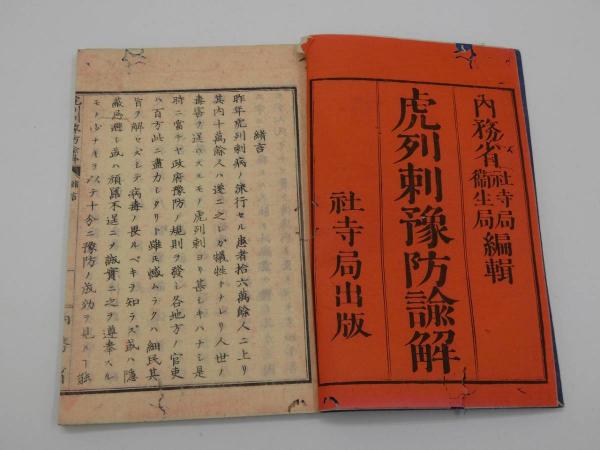 内務省 社寺局 衞生局 編輯
虎列剌豫防諭解
社寺局出版
緒言
昨年虎列剌病ノ流行セル患者拾六萬餘人ニ上リ
其内十萬餘人ハ遂ニ之レガ犠牲トナレリ人世ノ
毒害ヲ逞フスルモノ虎列剌ヨリ甚シキハナシ是
時ニ當テヤ政府豫防ノ規則ヲ發シ各地方ノ官吏
ハ百方此ニ盡力シタリト雖モ憾ムラクハ細民其
旨ヲ解セズシテ病毒ノ畏ルベキヲ知ラズ或ハ隱
蔽忌避シ或ハ頑冥不逞ニヲ誠實ニ之ヲ遵奉スル
モノ少ナキヲ以テ十分ニ豫防ノ成効ヲ見ル
緒言